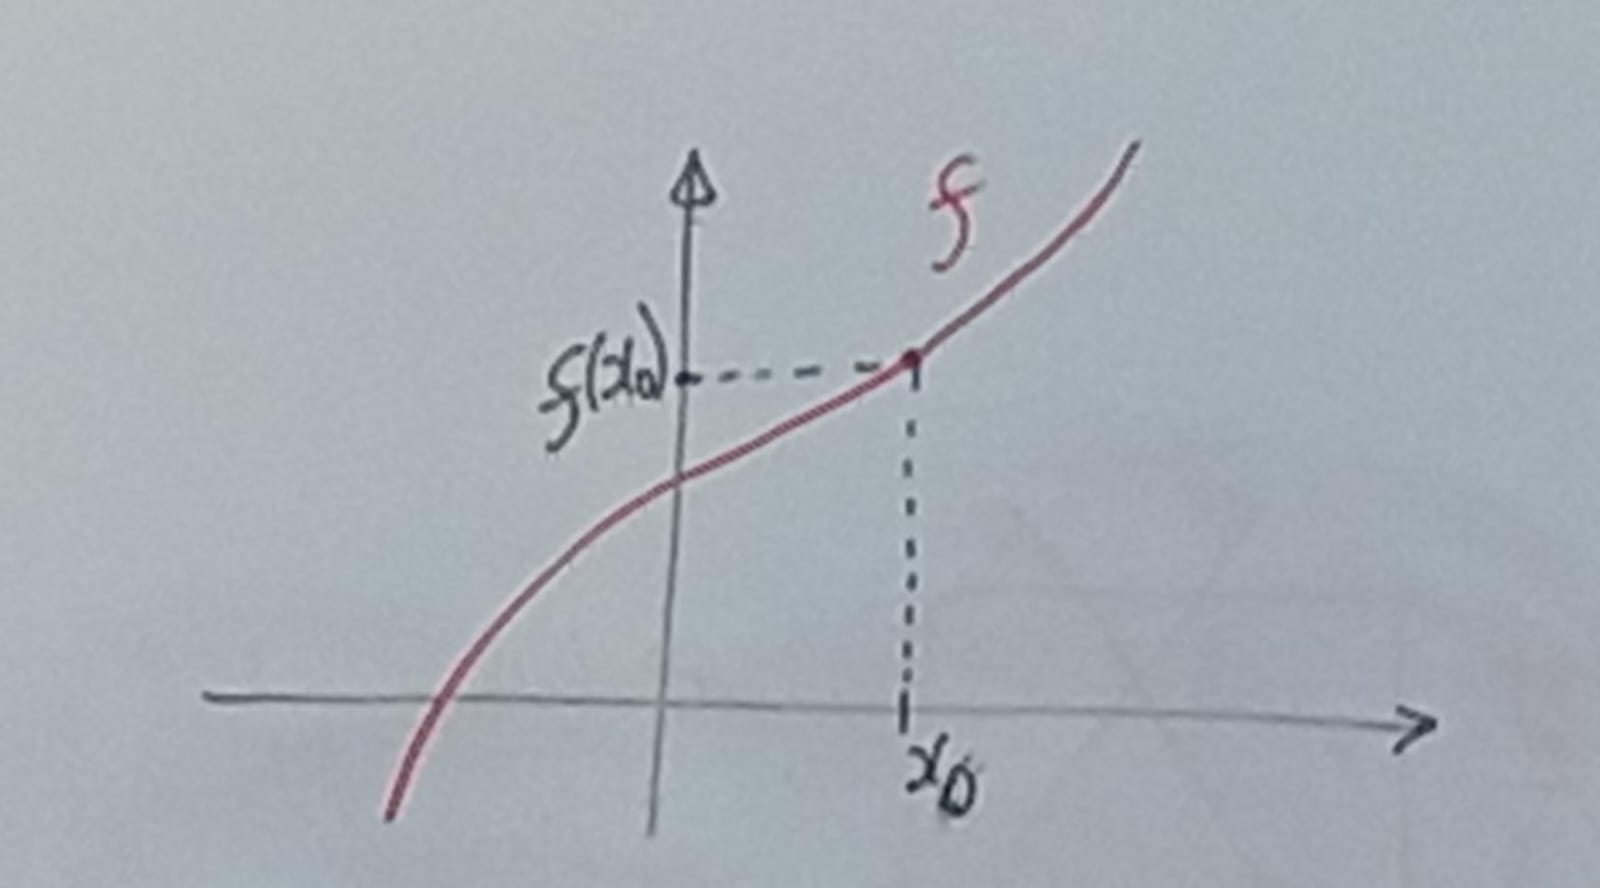 f
f(x₀)
x₀